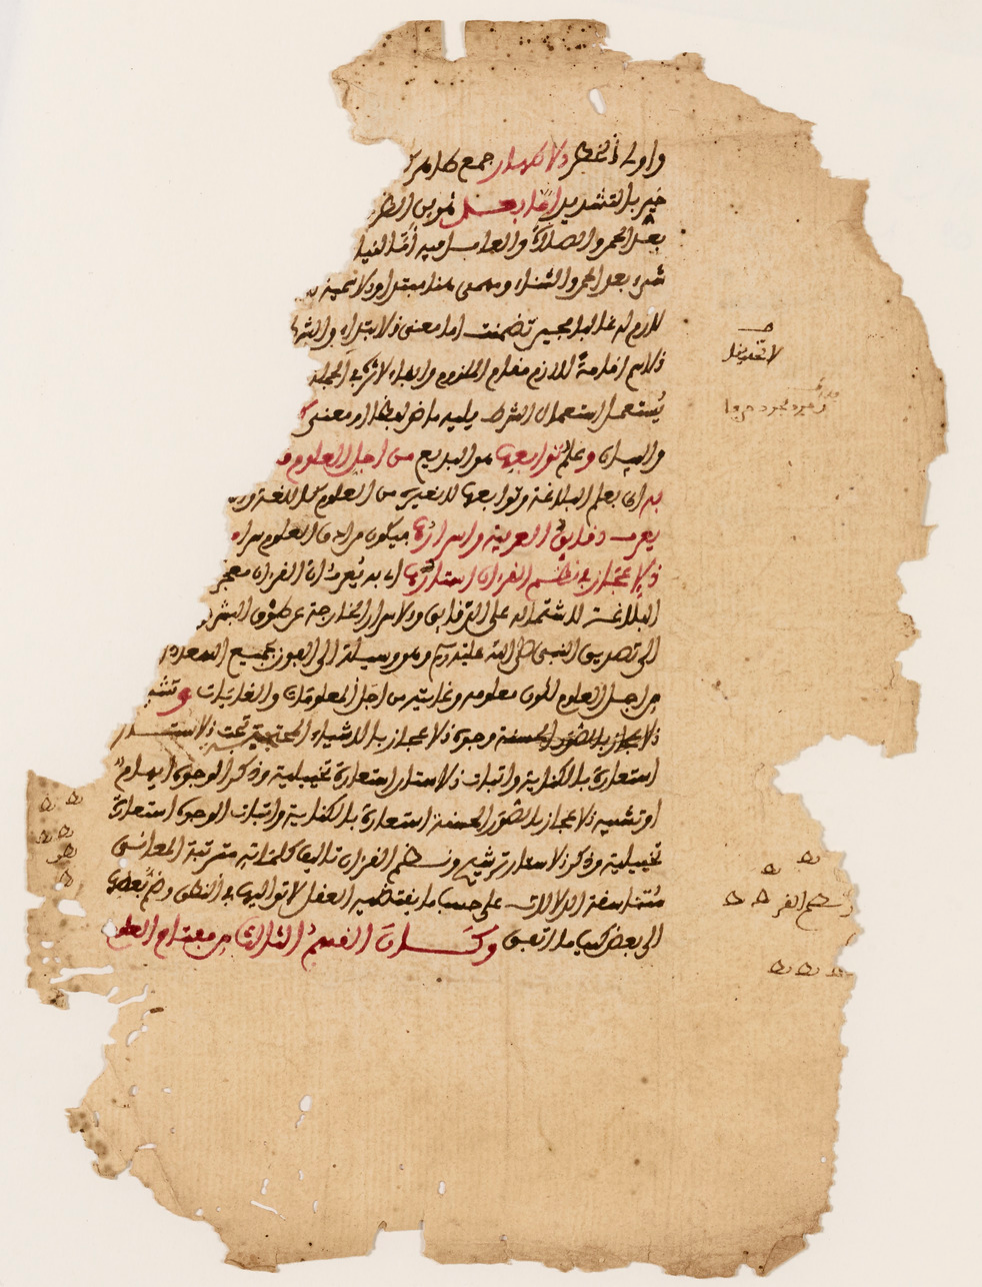 واولي الخطر الاطهار جمع طاهر
خير بالتشديد اما بعد هو من الظر
بعد الحمد والصلاة والعامل فيه أما لنيا
شيء بعد الحمد والثناء ومهما هنا مبتدا والاسمية
لازم له غالبا فحين تضمنت اما معنى الابتداء والشر
الاسم اقامة للازم مقام الملزوم وابقاء لاثره في الجملة
يُستعمل استعمال الشرط يليه ماض لفظا او معنى
والبيان وعلم توابعها هو البديع من اجل العلوم
به اى بعلم البلاغة وتوابعها لا بغيره من العلوم كاللغة
يعرف دقايق العربية واسرارها فيكون من ادق العلوم سرا
الاعجاز في نظم القرءان استارها اى به يُعرف ان القرءان معجز
البلاغة لاشتماله على الدقايق والاسرار الخارجة عن طوق البشر
الى تصديق النبي صلى الله عليه وسلم وهو وسيلة الى الفوز بجميع السعاد
من اجل العلوم لكون معلومه وغايته من اجل المعلومات والغايات وتشبيه
الاعجاز بالصور الحسنة وجوه الاعجاز بالاشياء المحتجبة تحت الاستار
استعارة بالكناية واثبات الاستار استعارة تخييلية وذكر الوجوه ايهام
او تشبيه الاعجاز بالصور الحسنة استعارة بالكناية واثبات الوجوه استعارة
تخييلية وذكر الاستار ترشيح ونظم القرءان تاليف كلماته مترتبة المعانى
متناسقة الدلالات على حسب ما يقتضيه العقل لا تواليها في النطق وضم بعضها
الى بعض كيف ما اتفق وكان القسم الثالث من مفتاح العلوم